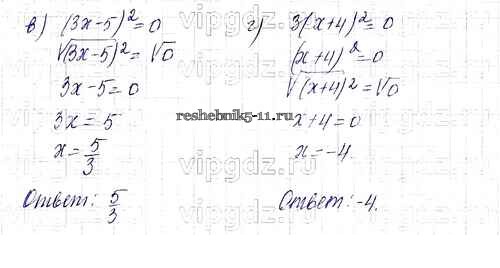 в) (3x-5)²=0
√(3x-5)²=√0
3x-5=0
3x=5
x=5/3
Ответ: 5/3
г) 3(x+4)²=0
(x+4)²=0
√(x+4)²=√0
x+4=0
x=-4.
Ответ: -4.
reshebnik5-11.ru
vipgdz.ru